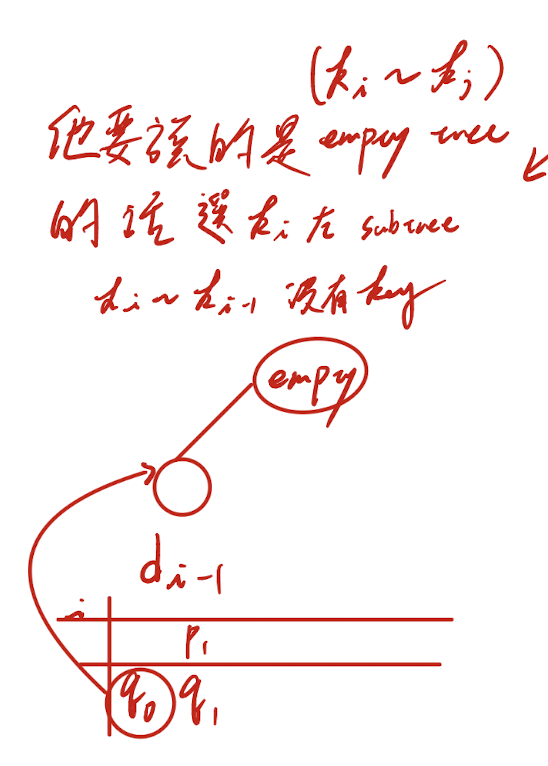 (ki ~ kj)
他要談的是 empty tree
的話選 ki 左 subtree
ki ~ ki-1 沒有 key
empy
di-1
i
p1
q0 q1